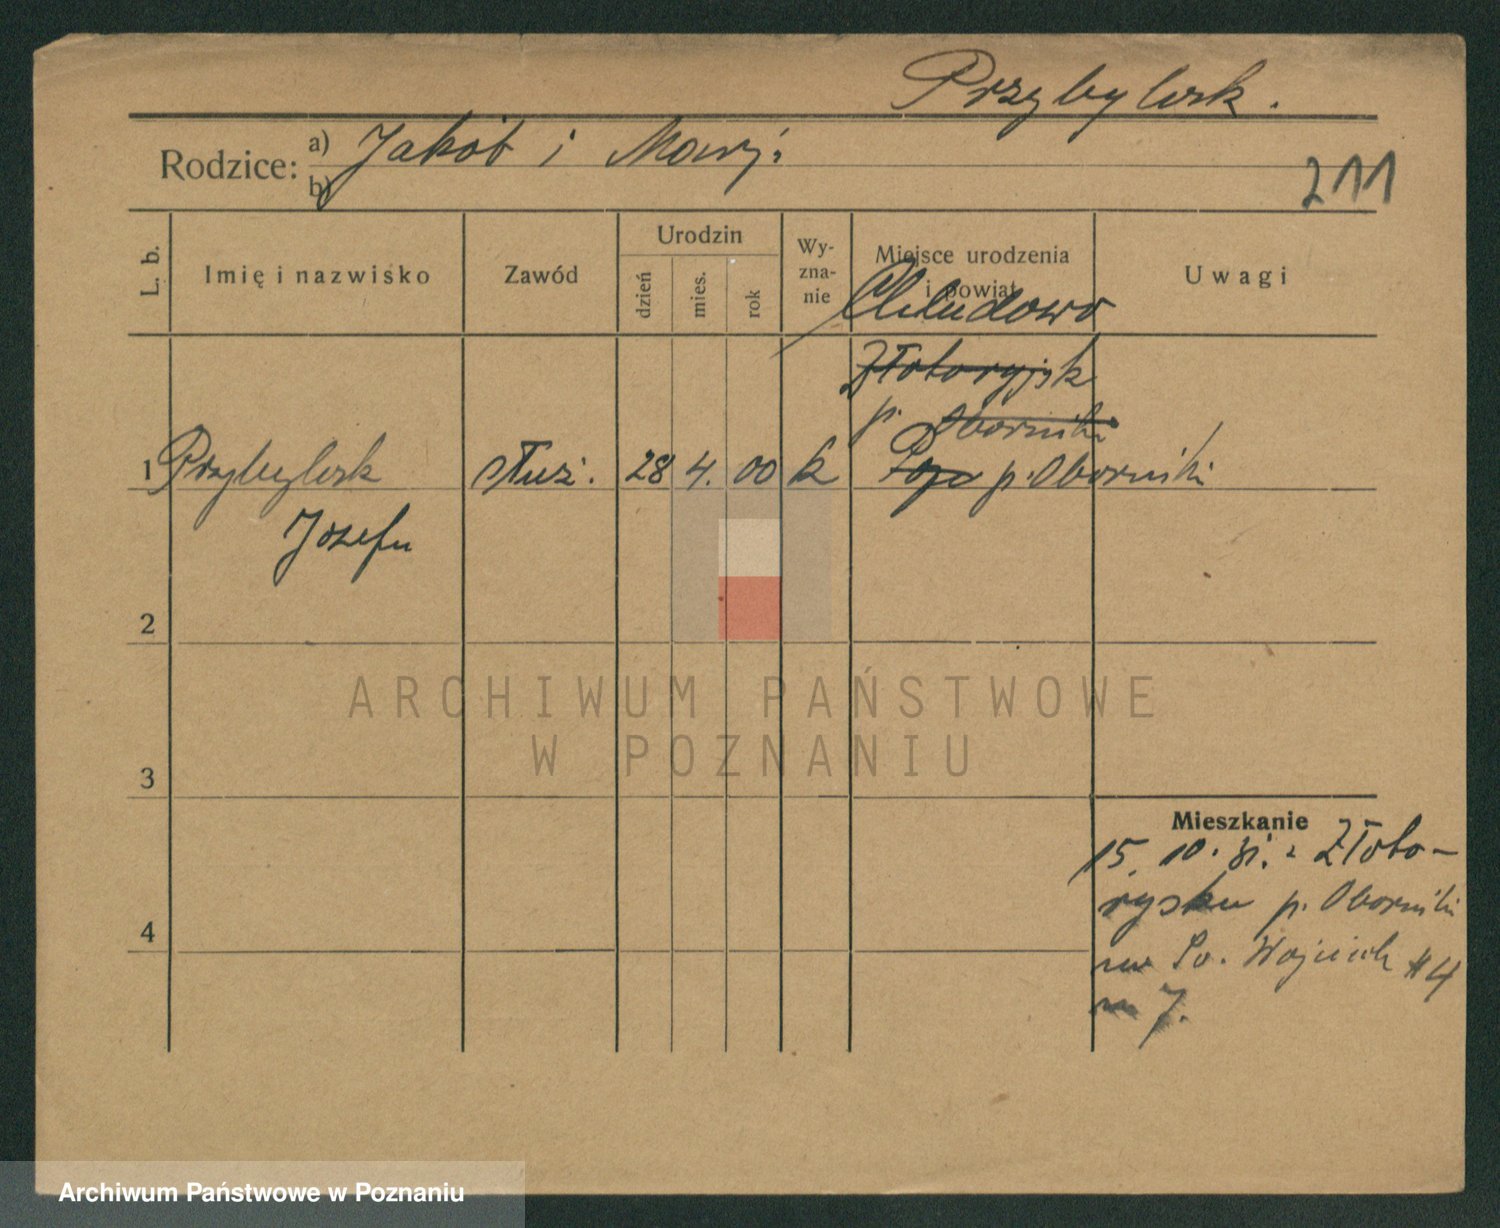 Przybylsk.
Rodzice: a) Jakób i Marj:
b)
211
L. b.
Imię i nazwisko
Zawód
Urodzin
dzień
mies.
rok
Wy-
zna-
nie
Miejsce urodzenia
i powiat
Uwagi
Chludowo
Złotoryjsk
p. Oborniki
1 Przybylsk służ. 28 4. 00 k p. Oborniki
Józefa
2
3
4
Mieszkanie
15. 10. 31. z Złoto-
rysku p. Oborniki
na Św. Wojciech #4
m 7.
ARCHIWUM PAŃSTWOWE
W POZNANIU
Archiwum Państwowe w Poznaniu